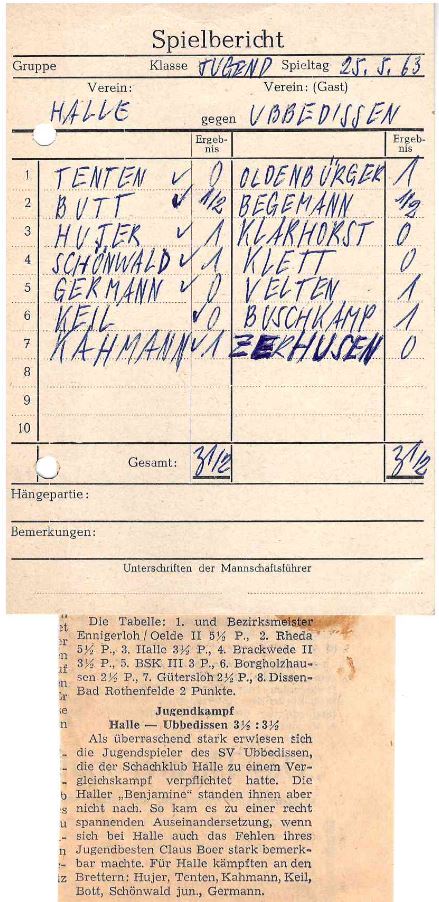 Spielbericht
Gruppe Klasse JUGEND Spieltag 25. 5. 63
Verein: Verein: (Gast)
HALLE gegen UBBEDISSEN
Ergeb- Ergeb-
nis nis
1 TENTEN ✓ 0 OLDENBÜRGER 1
2 BUTT ✓ 1/2 BEGEMANN 1/2
3 HUJER ✓ 1 KLARHORST 0
4 SCHÖNWALD ✓ 1 KLETT 0
5 GERMANN ✓ 0 VELTEN 1
6 KEIL ✓ 0 BUSCHKAMP 1
7 KAHMANN ✓ 1 ZERHUSEN 0
8
9
10
Gesamt: 3 1/2 3 1/2
Hängepartie:
Bemerkungen:
Unterschriften der Mannschaftsführer
Die Tabelle: 1. und Bezirksmeister
Ennigerloh / Oelde II 5½ P., 2. Rheda
5½ P., 3. Halle 3½ P., 4. Brackwede II
3½ P., 5. BSK III 3 P., 6. Borgholzhau-
sen 2½ P., 7. Gütersloh 2½ P., 8. Dissen-
Bad Rothenfelde 2 Punkte.
Jugendkampf
Halle — Ubbedissen 3½ : 3½
Als überraschend stark erwiesen sich
die Jugendspieler des SV Ubbedissen,
die der Schachklub Halle zu einem Ver-
gleichskampf verpflichtet hatte. Die
Haller „Benjamine“ standen ihnen aber
nicht nach. So kam es zu einer recht
spannenden Auseinandersetzung, wenn
sich bei Halle auch das Fehlen ihres
Jugendbesten Claus Boer stark bemerk-
bar machte. Für Halle kämpften an den
Brettern: Hujer, Tenten, Kahmann, Keil,
Bott, Schönwald jun., Germann.